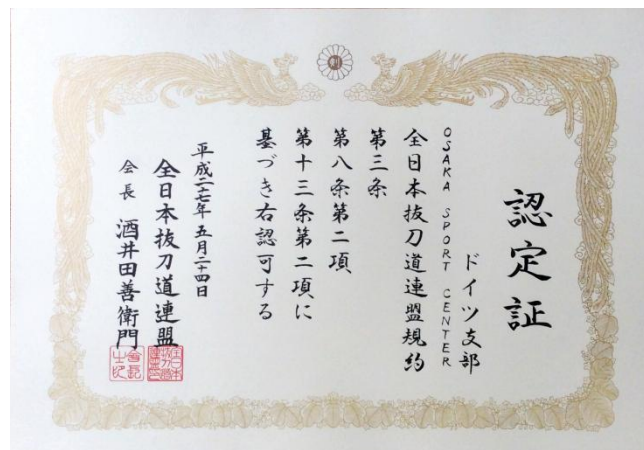 認定証
ドイツ支部
OSAKA SPORT CENTER
全日本抜刀道連盟規約
第三条
第八条第二項
第十三条第二項に
基づき右認可する
平成二七年五月二四日
全日本抜刀道連盟
会長 酒井田善衛門